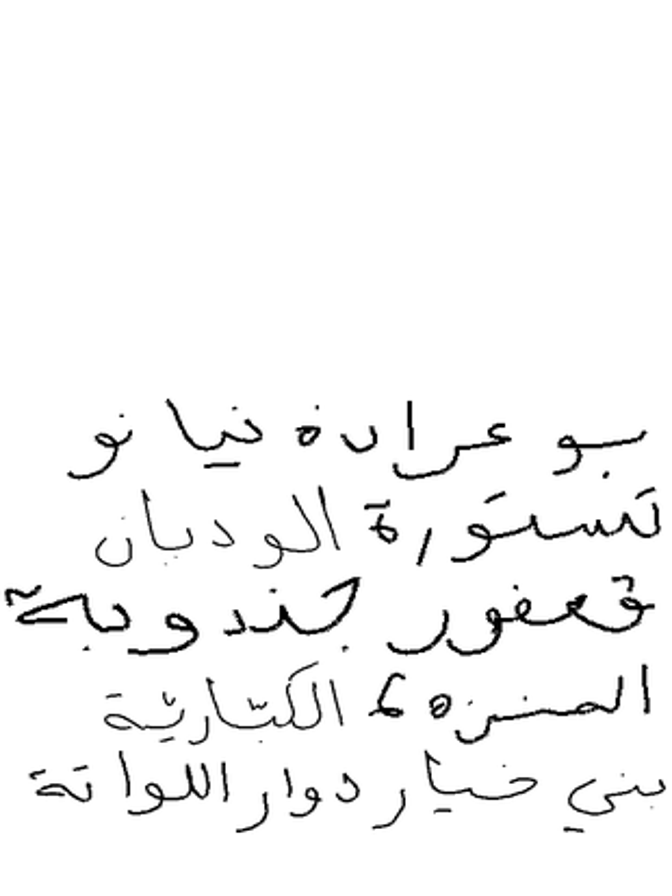 بو عرادة نيانو
تستورة الوديان
قعفور جندوبة
المنزه 6 الكبّاريّة
بني خيار دوار اللواتة